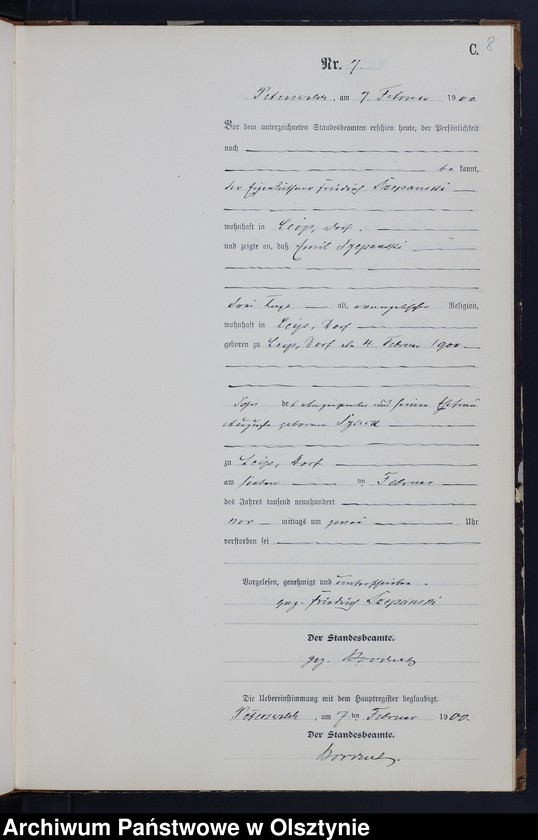 C. 8
Nr. 7
Peterswalde, am 7. Februar 1900.
Vor dem unterzeichneten Standesbeamten erschien heute, der Persönlichkeit
nach
be kannt,
der Eigenthümer Friedrich Szepanski
wohnhaft in Leip, Dorf.
und zeigte an, daß Emil Szepanski
drei Tage alt, evangelischer Religion,
wohnhaft in Leip, Dorf
geboren zu Leip, Dorf den 4. Februar 1900
Sohn des Anzeigenden und seiner Ehefrau
Auguste geborene
zu Leip, Dorf
am sieben ten Februar
des Jahres tausend neunhundert
vor mittags um Uhr
verstorben sei
Vorgelesen, genehmigt und unterschrieben.
gez. Friedrich Szepanski
Der Standesbeamte.
gez.
Die Uebereinstimmung mit dem Hauptregister beglaubigt.
Peterswalde, am 7 ten Februar 1900.
Der Standesbeamte.
Archiwum Państwowe w Olsztynie